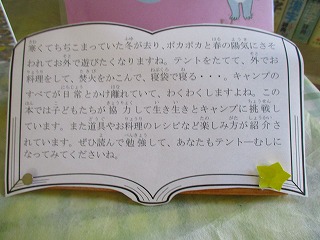 寒くてちぢこまっていた冬が去り、ポカポカと春の陽気にさそ
われてお外で遊びたくなりますね。テントをたてて、外でお
料理をして、焚火をかこんで、寝袋で寝る・・・。キャンプの
すべてが日常とかけ離れていて、わくわくしますよね。この
本では子どもたちが協力して生き生きとキャンプに挑戦し
ています。また道具やお料理のレシピなど楽しみ方が紹介さ
れています。ぜひ読んで勉強して、あなたもテント―むしに
なってみてくださいね。